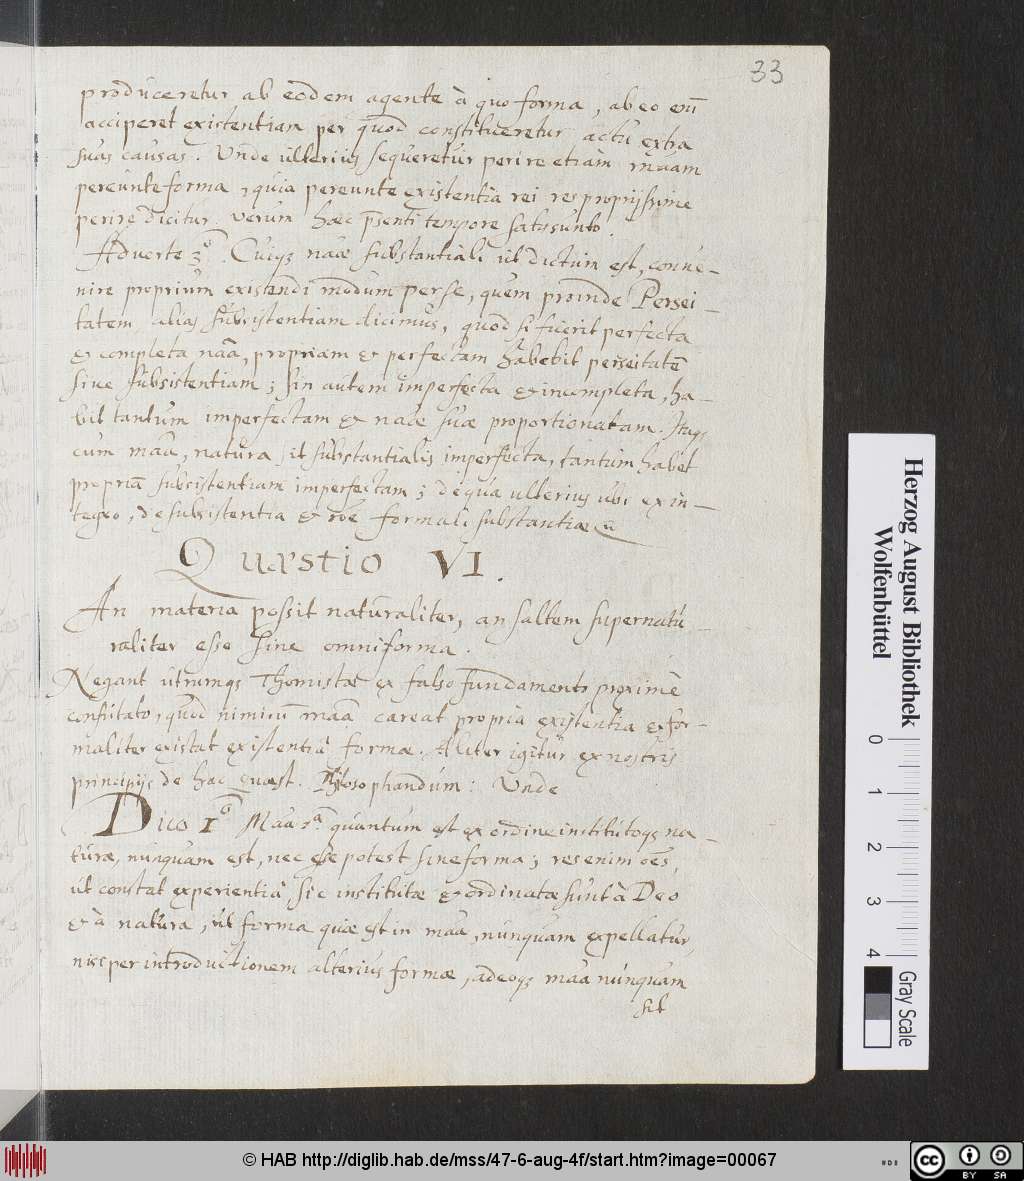 33
produceretur ab eodem agente à quo forma, ab eo em̄
acciperet existentiam per quod constitueretur actu extra
suas causas. Unde ulterius sequeretur perire etiam mãam
pereunte forma, quia pereunte existentia rei res propriissime
perire dicitur. verum haec p̄senti tempore satis sunto.
Adverte 3º. Cuiqꝫ naãe substantiali ut dictum est, conve-
nire proprium existendi modum per se, quem proinde Persei-
tatem alias subsistentiam dicimus, quod si fuerit perfecta
et completa naã, propriam et perfectam habebit perseitatē
sive subsistentiam; sin autem imperfecta et incompleta, ha-
bit tantum imperfectam et naãe suae proportionatam. Itaqꝫ
cum maã, natura sit substantialis imperfecta, tantum habet
propriã subsistentiam imperfectam; de qua ulterius ubi ex in-
tegro, de subsistentia et rõe formali substantiae
Quæstio VI.
An materia possit naturaliter, an saltem supernatu-
raliter esse sine omni forma.
Negant utrumqꝫ Thomistae ex falso fundamento proximè
confutato, quod nimirū maã careat propria existentia et for-
maliter existat existentiâ formae. Aliter igitur ex nostris
principijs de hac quaest. Philosophandum: Unde
Dico 1º Maã 1ã quantum est ex ordine institutoqꝫ na-
turae, nunquam est, nec esse potest sine forma; res enim oēs,
ut constat experientiâ sic institutae et ordinatae sunt à Deo
et à natura, ut forma quae est in maã, nunquam expellatur,
nisi per introductionem alterius formae, adeoqꝫ maã nunquam
sit
Herzog August Bibliothek
Wolfenbüttel
0 1 2 3 4
Gray Scale
© HAB http://diglib.hab.de/mss/47-6-aug-4f/start.htm?image=00067
cc BY SA